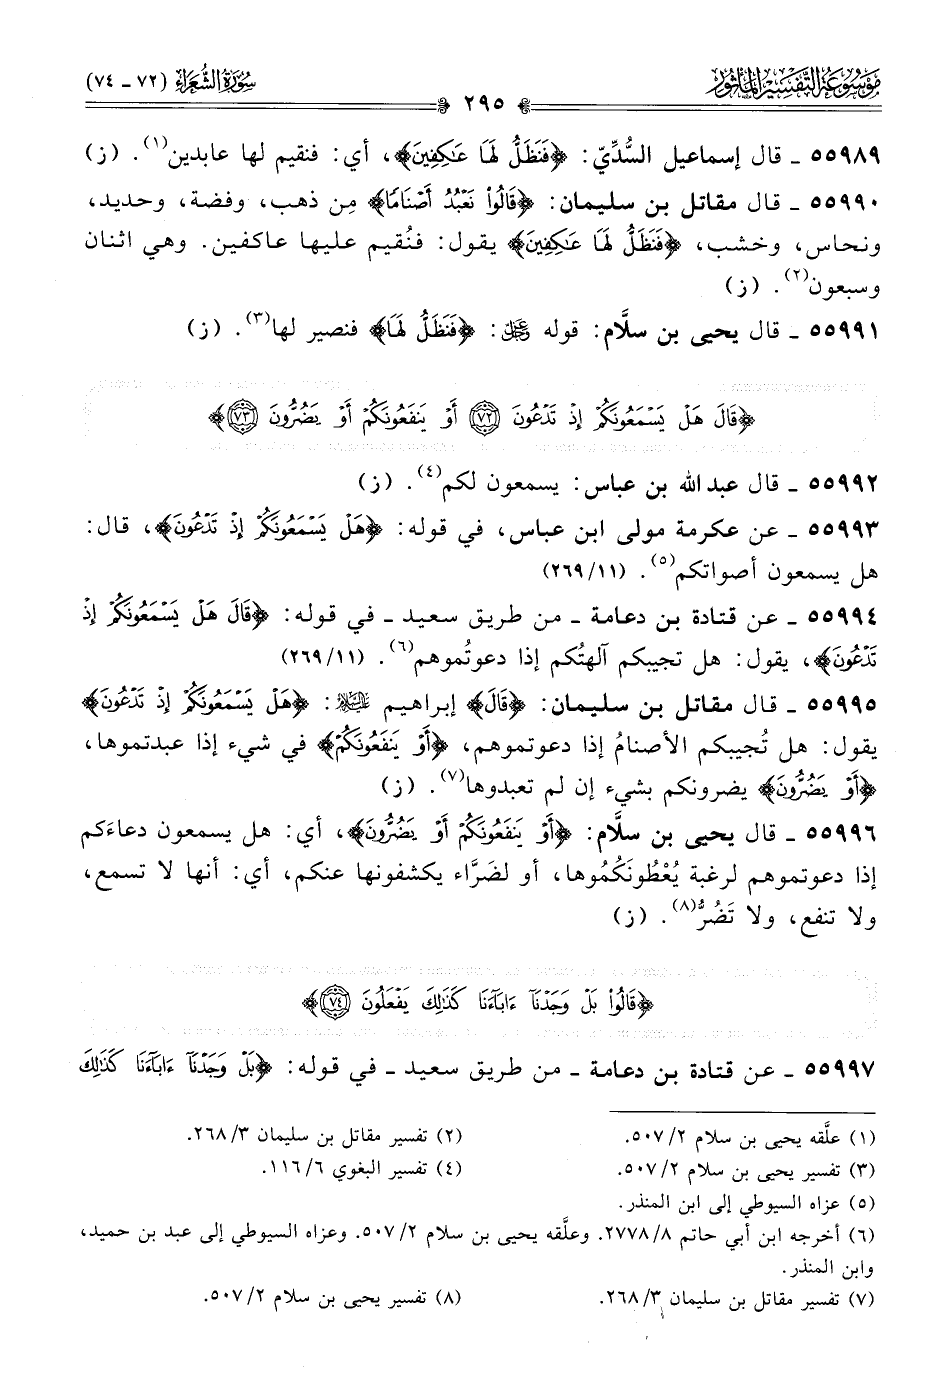 مَوْسُوعَة التَّفْسِير المَأْثُور
٢٩٥
سُورَةُ الشُّعَرَاءِ (٧٢ - ٧٤)
٥٥٩٨٩ - قال إسماعيل السُّدِّيّ: ﴿فَنَظَلُّ لَهَا عَٰكِفِينَ﴾، أي: فنقيم لها عابدين(١). (ز)
٥٥٩٩٠ - قال مقاتل بن سليمان: ﴿قَالُواْ نَعْبُدُ أَصْنَامًا﴾ مِن ذهب، وفضة، وحديد،
ونحاس، وخشب، ﴿فَنَظَلُّ لَهَا عَٰكِفِينَ﴾ يقول: فنُقيم عليها عاكفين. وهي اثنان
وسبعون(٢). (ز)
٥٥٩٩١ - قال يحيى بن سلَّام: قوله ﷿: ﴿فَنَظَلُّ لَهَا﴾ فنصير لها(٣). (ز)
﴿قَالَ هَلْ يَسْمَعُونَكُمْ إِذْ تَدْعُونَ ٧٢ أَوْ يَنفَعُونَكُمْ أَوْ يَضُرُّونَ ٧٣﴾
٥٥٩٩٢ - قال عبد الله بن عباس: يسمعون لكم(٤). (ز)
٥٥٩٩٣ - عن عكرمة مولى ابن عباس، في قوله: ﴿هَلْ يَسْمَعُونَكُمْ إِذْ تَدْعُونَ﴾، قال:
هل يسمعون أصواتكم(٥). (١١/٢٦٩)
٥٥٩٩٤ - عن قتادة بن دعامة - من طريق سعيد - في قوله: ﴿قَالَ هَلْ يَسْمَعُونَكُمْ إِذْ
تَدْعُونَ﴾، يقول: هل تجيبكم آلهتُكم إذا دعوتُموهم(٦). (١١/٢٦٩)
٥٥٩٩٥ - قال مقاتل بن سليمان: ﴿قَالَ﴾ إبراهيم عليه السلام: ﴿هَلْ يَسْمَعُونَكُمْ إِذْ تَدْعُونَ﴾
يقول: هل تُجيبكم الأصنامُ إذا دعوتموهم، ﴿أَوْ يَنفَعُونَكُمْ﴾ في شيء إذا عبدتموها،
﴿أَوْ يَضُرُّونَ﴾ يضرونكم بشيء إن لم تعبدوها(٧). (ز)
٥٥٩٩٦ - قال يحيى بن سلَّام: ﴿أَوْ يَنفَعُونَكُمْ أَوْ يَضُرُّونَ﴾، أي: هل يسمعون دعاءَكم
إذا دعوتموهم لرغبة يُعْطُونَكُمُوها، أو لضَرَّاء يكشفونها عنكم، أي: أنها لا تسمع،
ولا تنفع، ولا تَضُرُّ(٨). (ز)
﴿قَالُواْ بَلْ وَجَدْنَآ ءَابَآءَنَا كَذَٰلِكَ يَفْعَلُونَ ٧٤﴾
٥٥٩٩٧ - عن قتادة بن دعامة - من طريق سعيد - في قوله: ﴿بَلْ وَجَدْنَآ ءَابَآءَنَا كَذَٰلِكَ
(١) علَّقه يحيى بن سلام ٢/ ٥٠٧.
(٢) تفسير مقاتل بن سليمان ٣/ ٢٦٨.
(٣) تفسير يحيى بن سلام ٢/ ٥٠٧.
(٤) تفسير البغوي ٦/ ١١٦.
(٥) عزاه السيوطي إلى ابن المنذر.
(٦) أخرجه ابن أبي حاتم ٨/ ٢٧٧٨. وعلَّقه يحيى بن سلام ٢/ ٥٠٧. وعزاه السيوطي إلى عبد بن حميد،
وابن المنذر.
(٧) تفسير مقاتل بن سليمان ٣/ ٢٦٨.
(٨) تفسير يحيى بن سلام ٢/ ٥٠٧.